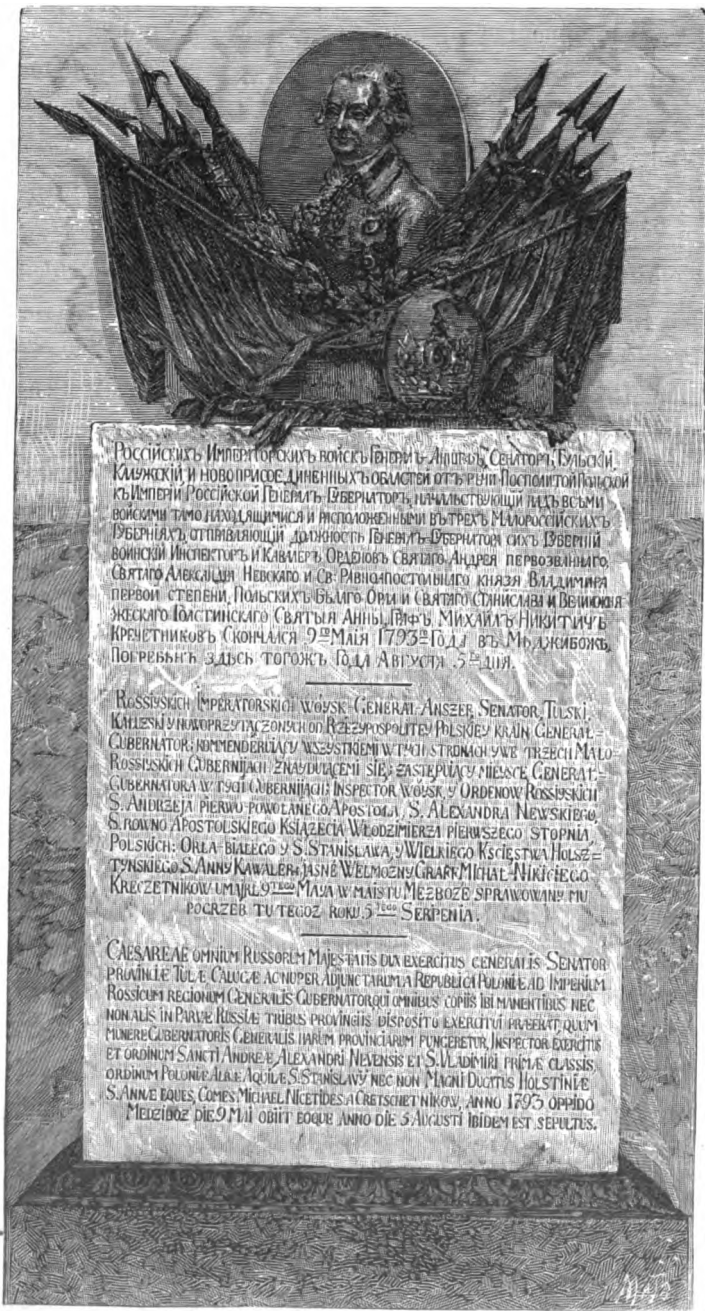 Россійскихъ Императорскихъ войскъ Генералъ-Аншефъ, Сенаторъ, Тульскій,
Калужскій, и новоприсоединенныхъ областей отъ речи Посполитой Польской
къ Имперіи Россійской Генералъ-Губернаторъ, начальствующій надъ всѣми
войсками тамо находящимися и расположенными въ трехъ Малороссійскихъ
Губерніяхъ, отправляющій должность Генералъ-Губернатора сихъ Губерній
воинскій Инспекторъ и Кавалеръ Орденовъ Святаго Андрея первозваннаго,
Святаго Александра Невскаго и Св. Равноапостольнаго князя Владимира
первой степени, Польскихъ Бѣлаго Орла и Святаго Станислава и Великокня
жескаго Голстинскаго Святыя Анны, Графъ, Михаилъ Никитичъ
Кречетниковъ Скончался 9го Маія 1793го Года въ Мѣджибожѣ,
Погребенъ здѣсь тогожъ Года Августа 5го дня.
Rossiyskich Imperatorskich woysk General Anszef, Senator, Tulski,
Kałuzski y nowoprzyłączonych od Rzeżypospolitey Polskiey krain General-
Gubernator; kommenderuiący wszystkiemi w tych stronach y we trzech Mało-
Rossiyskich Gubernijach znayduiącemi się; zastępuiący mieysce Generał-
Gubernatora w tych Gubernijach; Inspector woysk, y Ordenow Rossiyskich
S. Andrzeja pierwo-powołanego Apostoła, S. Alexandra Newskiego,
S. rowno Apostolskiego Xiążęcia Włodzimierza pierwszego stopnia,
Polskich: Orła-białego y S. Stanisława, y Wielkiego Kscięstwa Holsz=
tynskiego S. Anny Kawaler; jasne Welmożny Graff Michał Nikiciego
Kreczetnikow umarł 9tego Maya w maistu Mezboże sprawowany mu
pogrzeb tu tegoz roku 5tego Serpenia.
Caesareae omnium Russorum Majestatis dux exercitus generalis Senator
provinciæ Tulæ Calugæ ac nuper adjunctarum a Republica Poloniæ ad Imperium
Rossicum regionum Generalis Gubernator qui omnibus copiis ibi manentibus nec
non aliis in Parvæ Russiæ tribus provinciis disposito exercitui præerat, quum
munere Gubernatoris Generalis harum provinciarum fungeretur, Inspector exercitus
et ordinum Sancti Andreæ, Alexandri Nevensis et S. Vladimiri primæ classis,
ordinum Poloniæ Albæ Aquilæ S. Stanislavy nec non Magni Ducatus Holstiniæ
S. Annæ eques, Comes Michael Nicetides a Cretschetnikow, anno 1793 oppido
Medziboz die 9 Mai obiit eoque anno die 5 Augusti ibidem est sepultus.